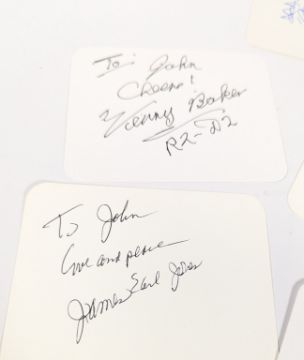 To John
Cheers!
Kenny Baker
R2-D2
To John
Love and peace
James Earl Jones